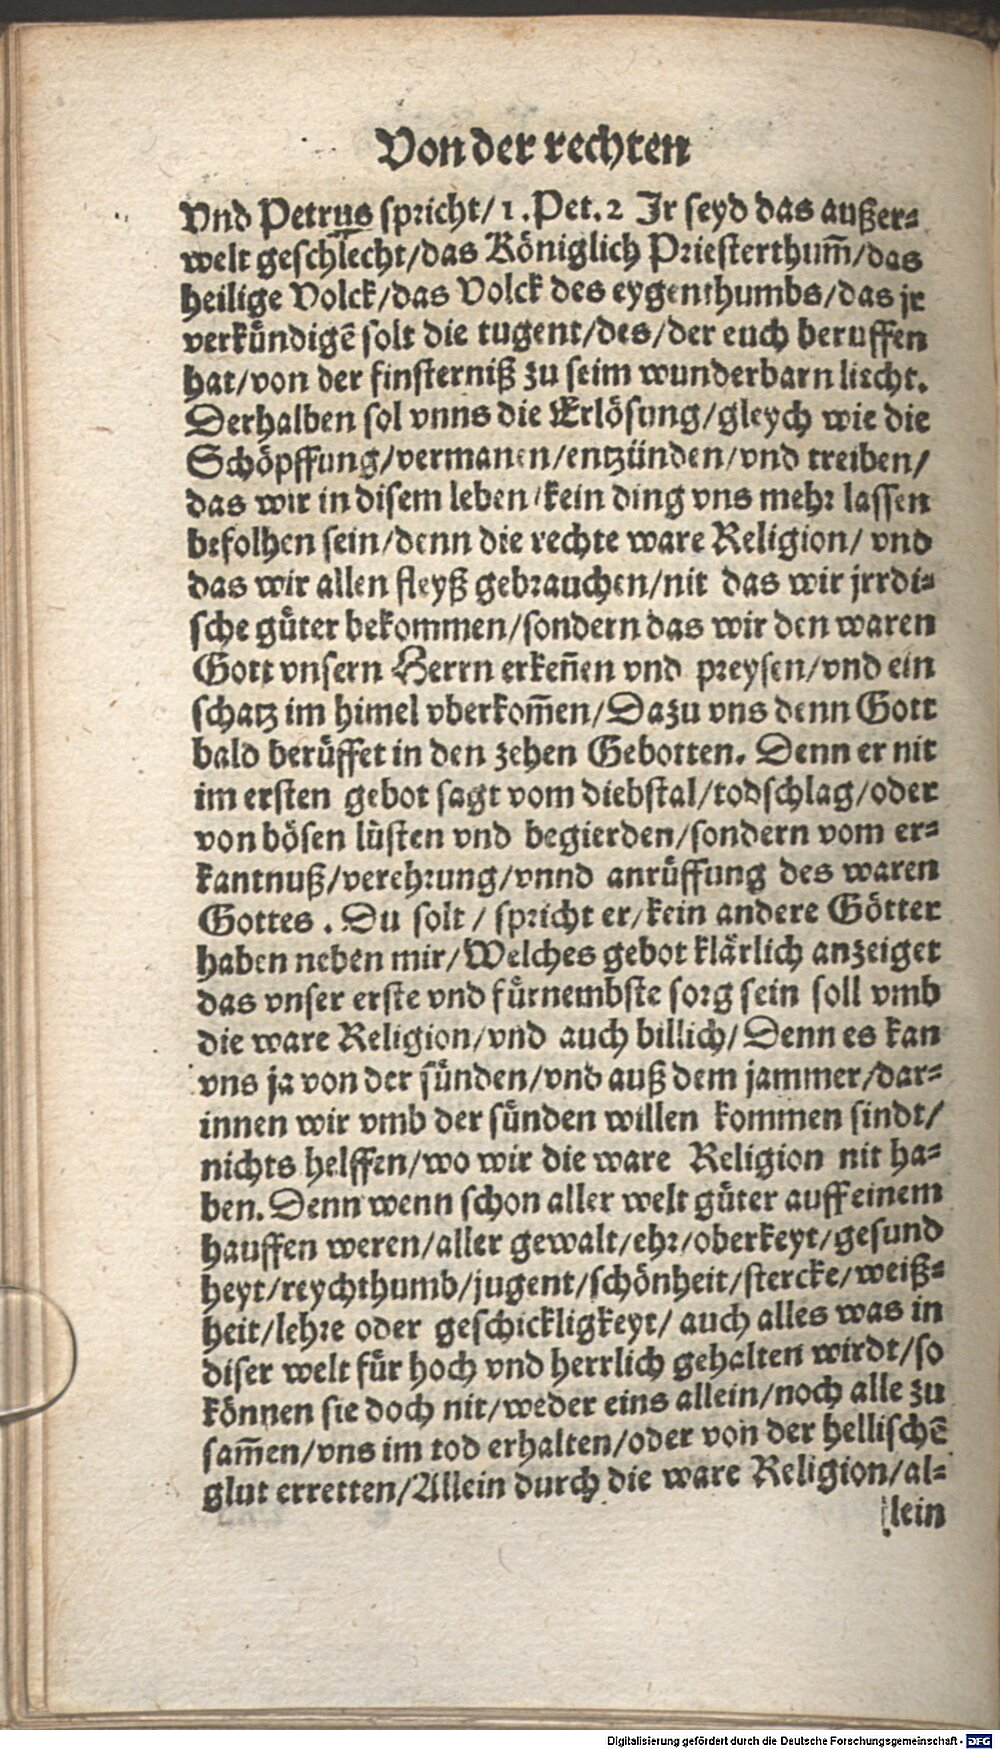 Von der rechten
Vnd Petrus spricht/ 1. Pet. 2 Ir seyd das außer-
welt geschlecht/das Königlich Priesterthum̄/das
heilige Volck/das Volck des eygenthumbs/das jr
verkündigē solt die tugent/des/der euch beruffen
hat/von der finsterniß zu seim wunderbarn liecht.
Derhalben sol vnns die Erlösung/gleych wie die
Schöpffung/vermanen/entzünden/vnd treiben/
das wir in disem leben/kein ding vns mehr lassen
befolhen sein/denn die rechte ware Religion/ vnd
das wir allen fleyß gebrauchen/nit das wir jrrdi-
sche güter bekommen/sondern das wir den waren
Gott vnsern Herrn erken̄en vnd preysen/vnd ein
schatz im himel vberkom̄en/Dazu vns denn Gott
bald berüffet in den zehen Gebotten. Denn er nit
im ersten gebot sagt vom diebstal/todschlag/oder
von bösen lüsten vnd begierden/sondern vom er-
kantnuß/verehrung/vnnd anrüffung des waren
Gottes. Du solt/ spricht er/kein andere Götter
haben neben mir/Welches gebot klärlich anzeiget
das vnser erste vnd fürnembste sorg sein soll vmb
die ware Religion/vnd auch billich/Denn es kan
vns ja von der sünden/vnd auß dem jammer/dar-
innen wir vmb der sünden willen kommen sindt/
nichts helffen/wo wir die ware Religion nit ha-
ben. Denn wenn schon aller welt güter auff einem
hauffen weren/aller gewalt/ehr/oberkeyt/gesund
heyt/reychthumb/jugent/schönheit/stercke/weiß-
heit/lehre oder geschickligkeyt/ auch alles was in
diser welt für hoch vnd herrlich gehalten wirdt/so
können sie doch nit/weder eins allein/noch alle zu
sam̄en/vns im tod erhalten/oder von der hellischē
glut erretten/Allein durch die ware Religion/al-
lein
Digitalisierung gefördert durch die Deutsche Forschungsgemeinschaft - DFG